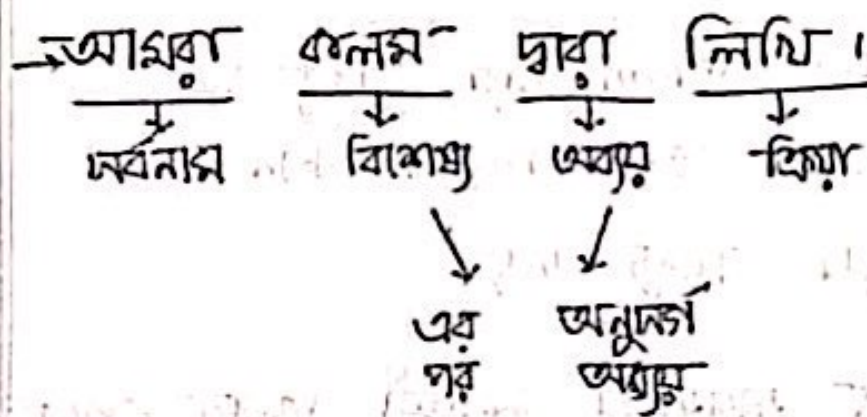 →আমরা কলম দ্বারা লিখি।
সর্বনাম বিশেষ্য অব্যয় ক্রিয়া
এর অনুসর্গ
পর অব্যয়